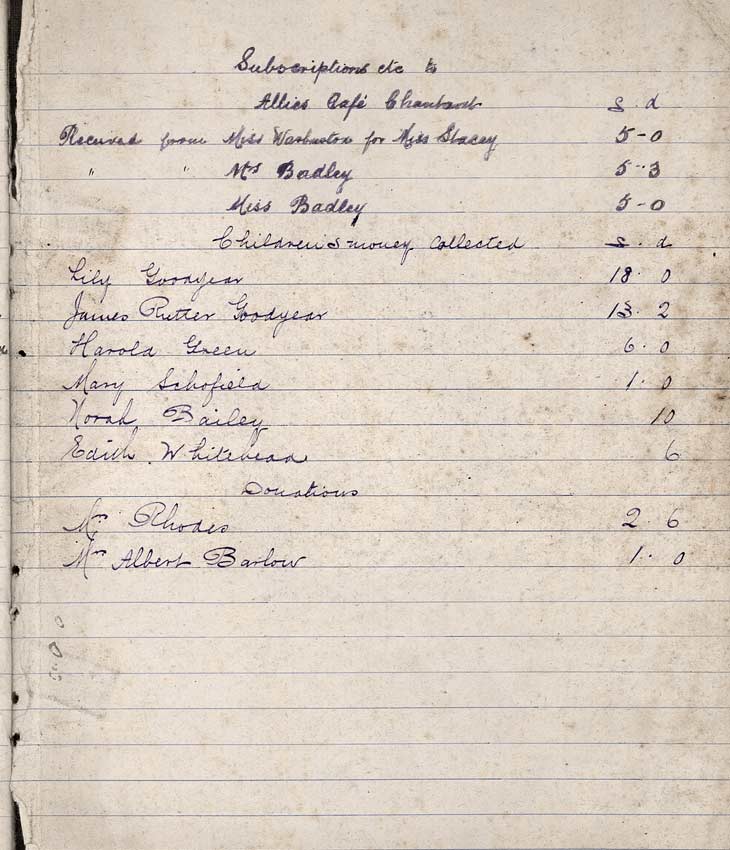 Subscriptions etc to
Allies Café Chantant s. d
Received from Miss Warburton for Miss Stacey 5-0
" " Mrs Badley 5-3
Miss Badley 5-0
Children's money collected s. d
Lily Goodyear 18. 0
James Rutter Goodyear 13. 2
Harold Green 6. 0
Mary Schofield 1. 0
Norah Bailey 10
Edith Whitehead 6
Donations
Rhodes 2. 6
Albert Barlow 1. 0